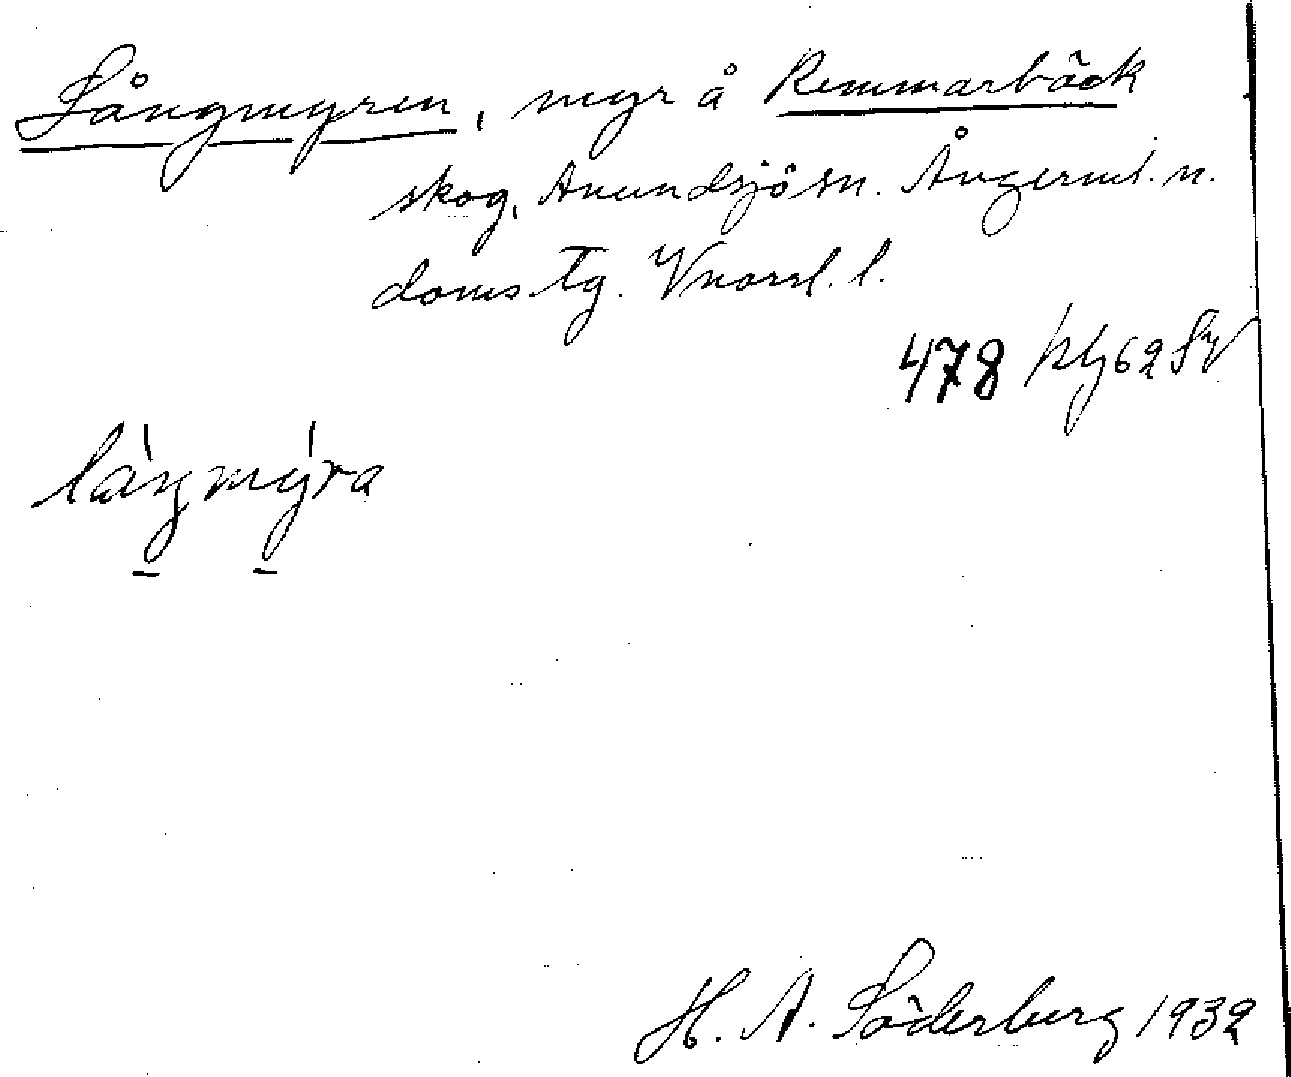 Långmyren, myr å Remmarbäck
skog, Anundsjö sn. Ångerml. n.
doms. tg. Vnorrl. l.
478
låŋmýra
H. A. Söderberg 1932